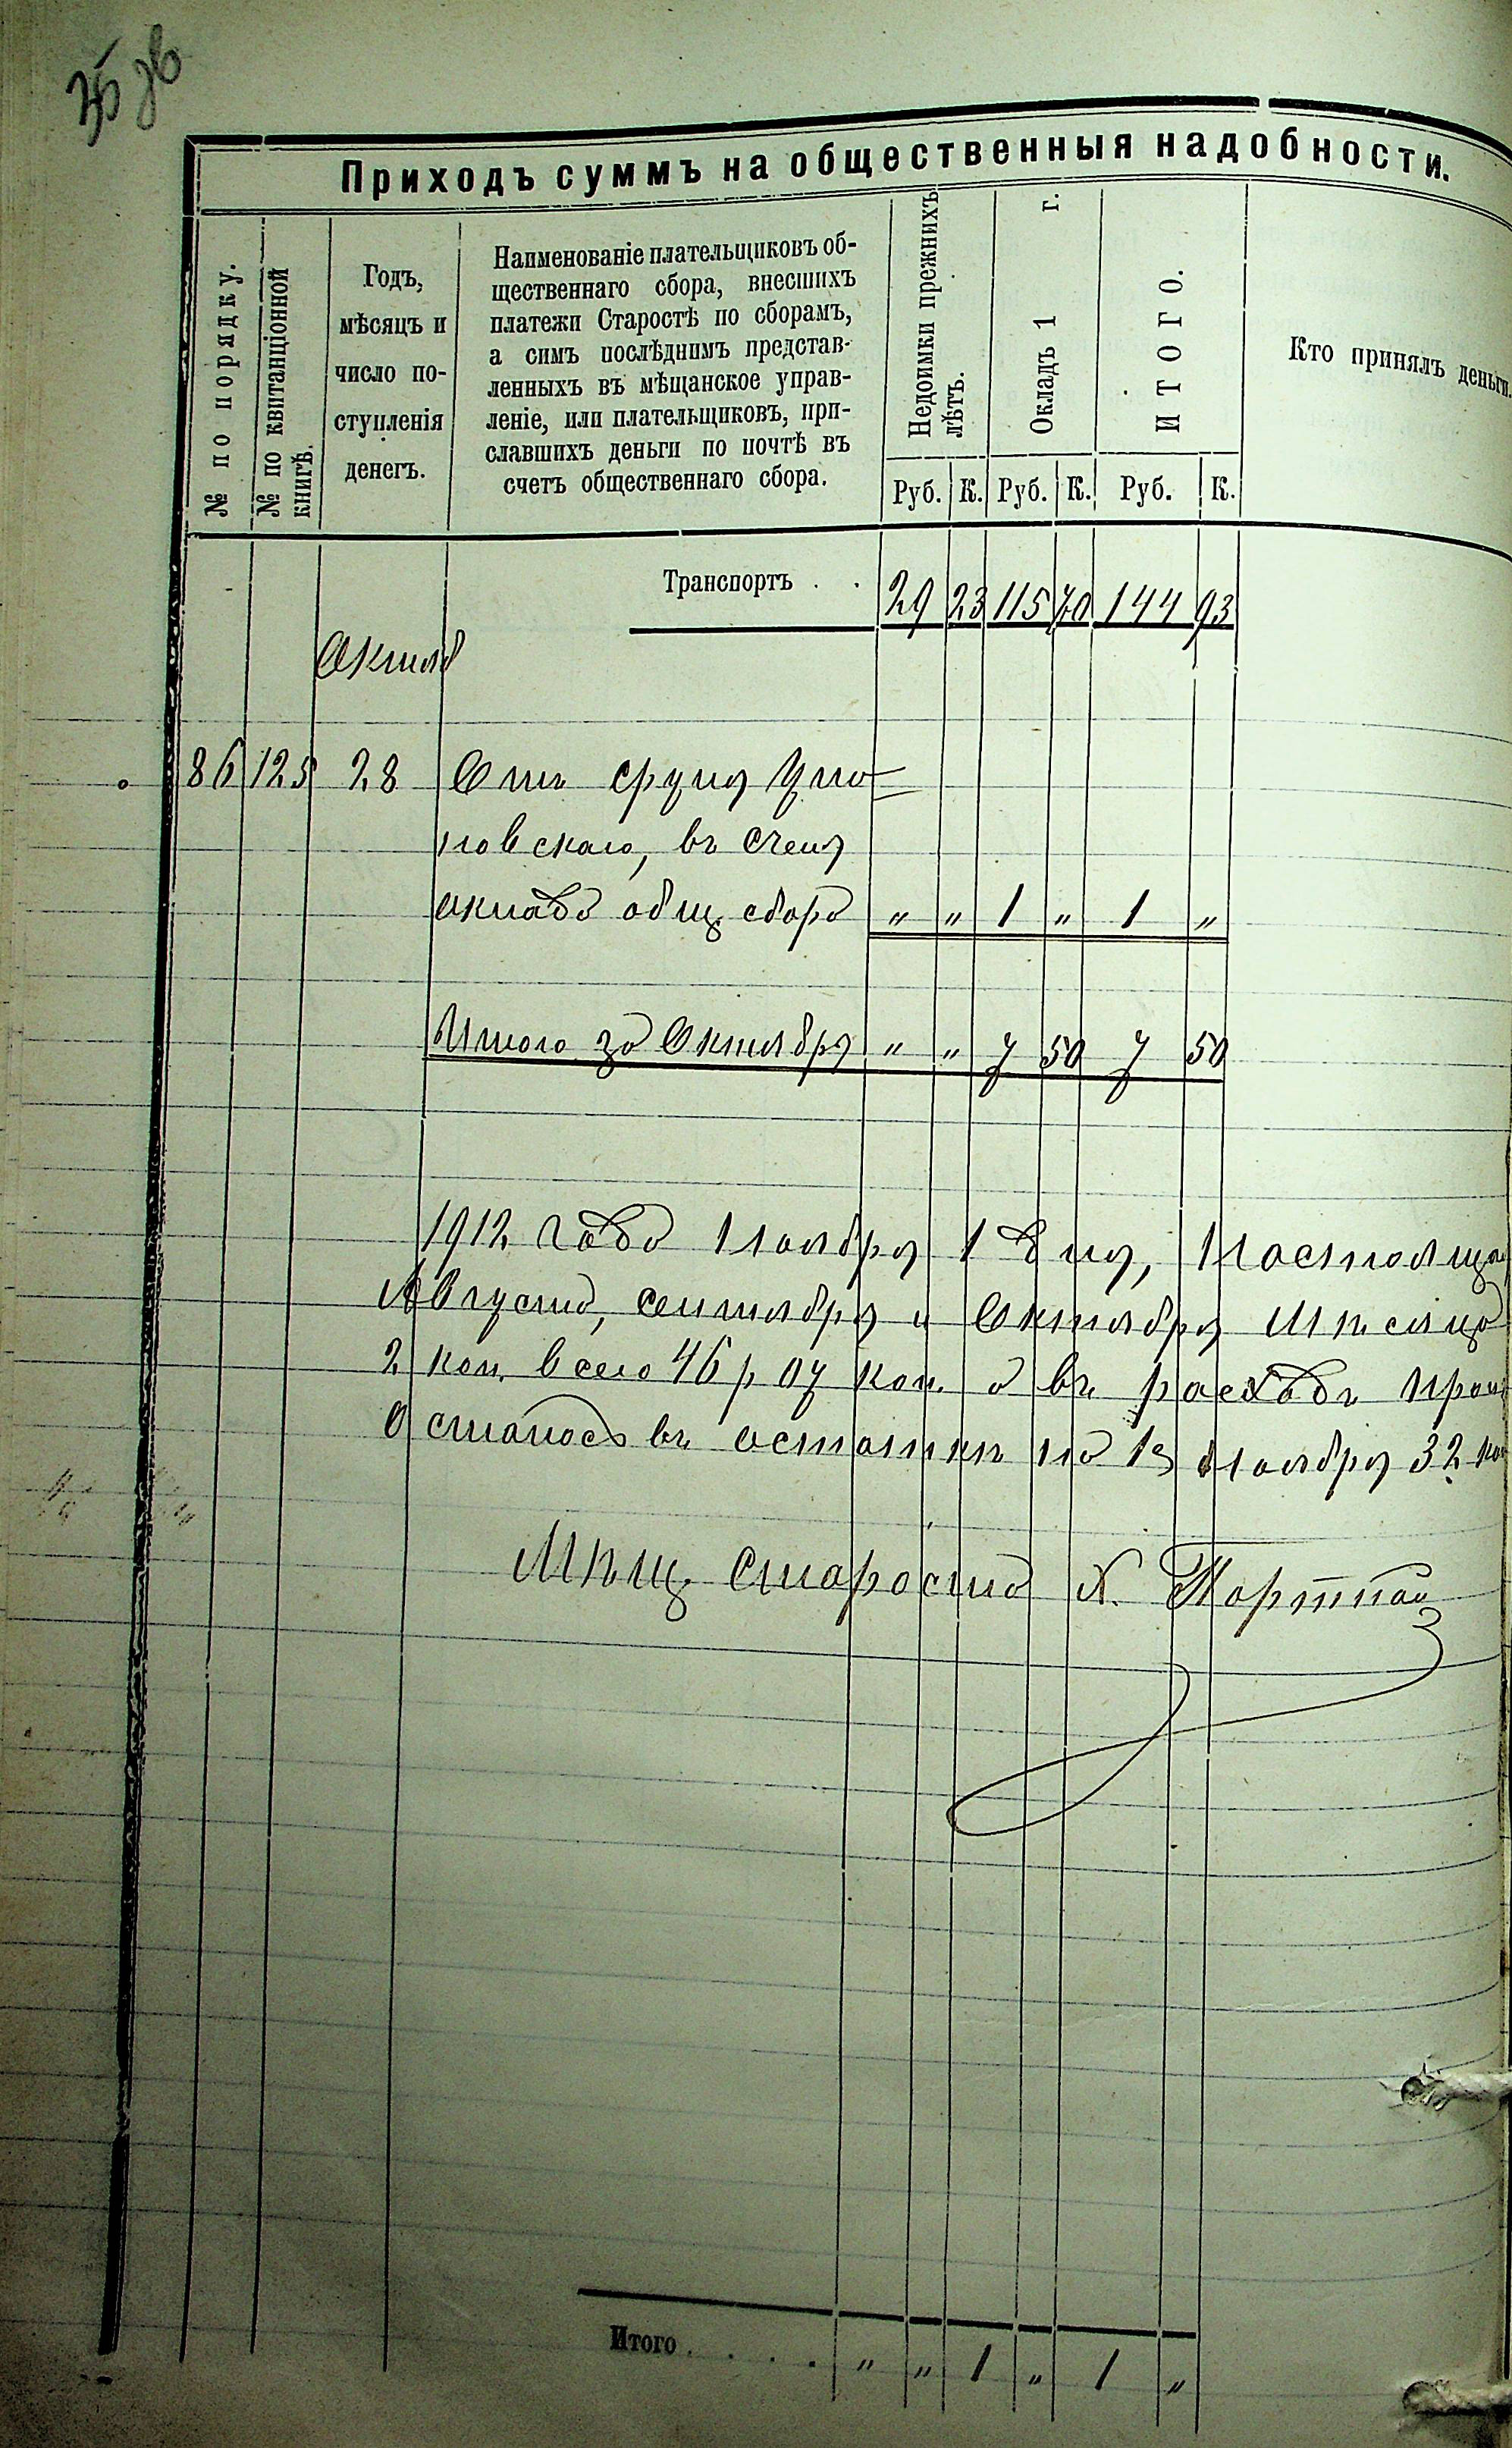 35 об
Приходъ суммъ на общественныя надобности.
№ по порядку.
№ по квитанціонной книгѣ.
Годъ,
мѣсяцъ и
число по-
ступленія
денегъ.
Наименованіе плательщиковъ об-
щественнаго сбора, внесшихъ
платежи Старостѣ по сборамъ,
а симъ послѣднимъ представ-
ленныхъ въ мѣщанское управ-
леніе, или плательщиковъ, при-
славшихъ деньги по почтѣ въ
счетъ общественнаго сбора.
Недоимки прежнихъ лѣтъ.
Окладъ 1 г.
ИТОГО.
Кто принялъ деньги.
Руб. К. Руб. К. Руб. К.
Транспортъ . . 29 23 115 70 144 93
Октяб
86 125 28 Отъ
новскаго, въ счетъ
оклада общ. сбора " " 1 " 1 "
Итого за Октябрь " " 7 50 7 50
1912 года Ноября 1 дня, Настоящ
Августа, сентября и Октября Мѣсяца
2 коп. всего 46 р 07 коп. а въ расходъ
Осталось въ остаткѣ на 1е Ноября 32 коп
Мѣщ. Староста Х. Портной
Итого . . . . " " 1 " 1 "